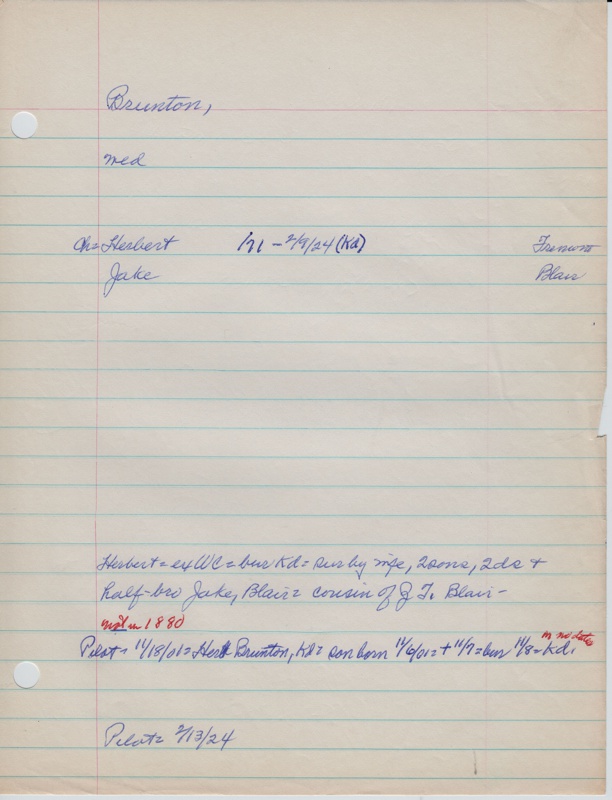 Brunton,
med
ch= Herbert 1/71 - 2/9/24 (Kd) Fremont
Jake Blair
Herbert = ex WC = bur Kd = sur by wife, 2 sons, 2 ds +
half-bro Jake, Blair = cousin of J. T. Blair -
not in 1880
m no dates
Pilot = 11/18/01 = Herb Brunton, Kd = son born 11/6/01 = + 11/7 = bur 11/8 = Kd.
Pilot = 2/13/24